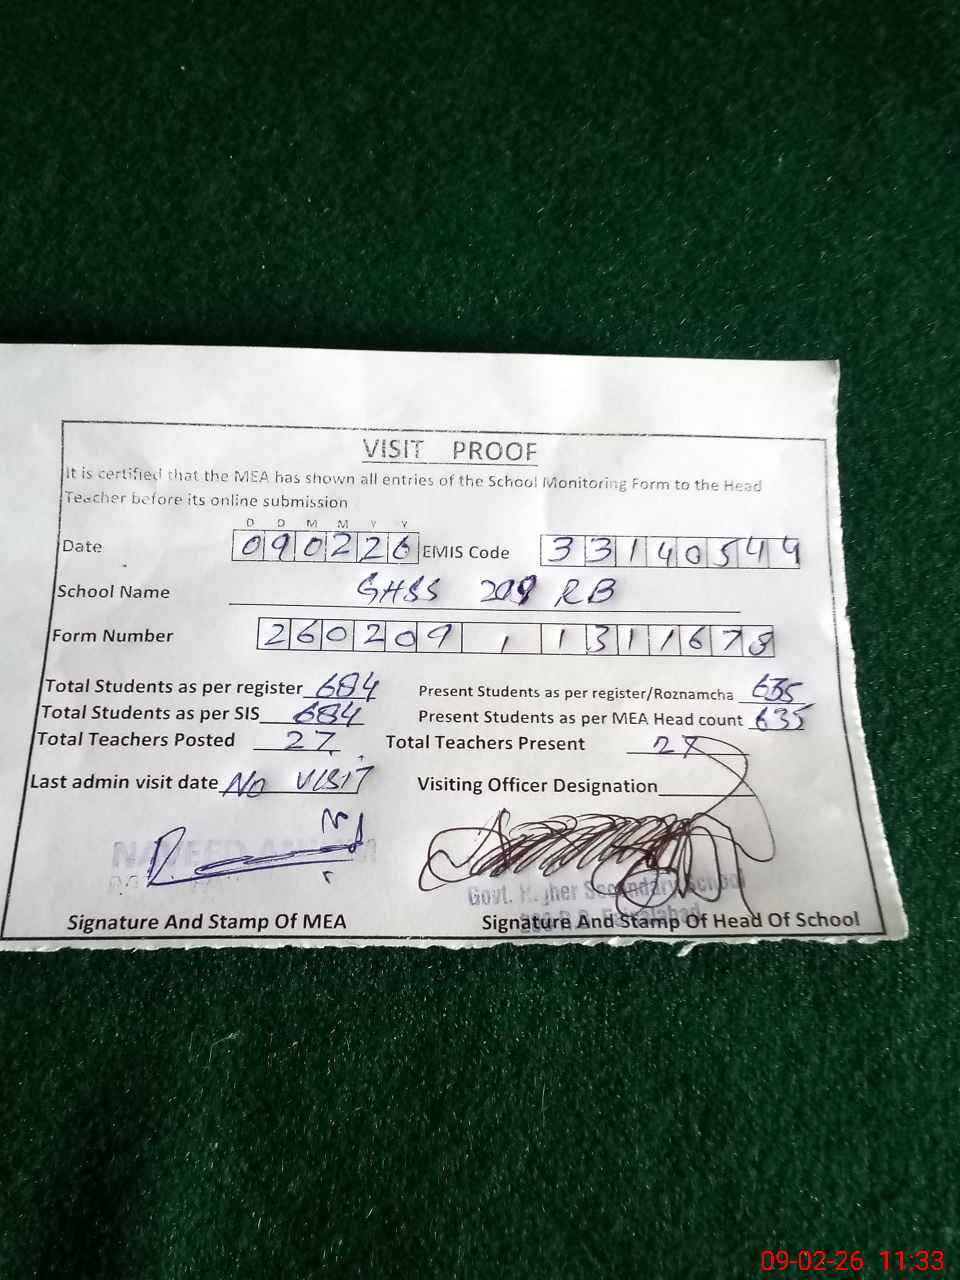 VISIT PROOF
It is certified that the MEA has shown all entries of the School Monitoring Form to the Head
Teacher before its online submission
D D M M Y Y
Date 090226 EMIS Code 33140544
School Name GHSS 209 RB
Form Number 260209 , 1311678
Total Students as per register 684 Present Students as per register/Roznamcha 635
Total Students as per SIS 684 Present Students as per MEA Head count 635
Total Teachers Posted 27 Total Teachers Present 27
Last admin visit date No VISIT Visiting Officer Designation
NAVEED
Govt. Higher Secondary School
Signature And Stamp Of MEA Signature And Stamp Of Head Of School
Faisalabad
09-02-26 11:33